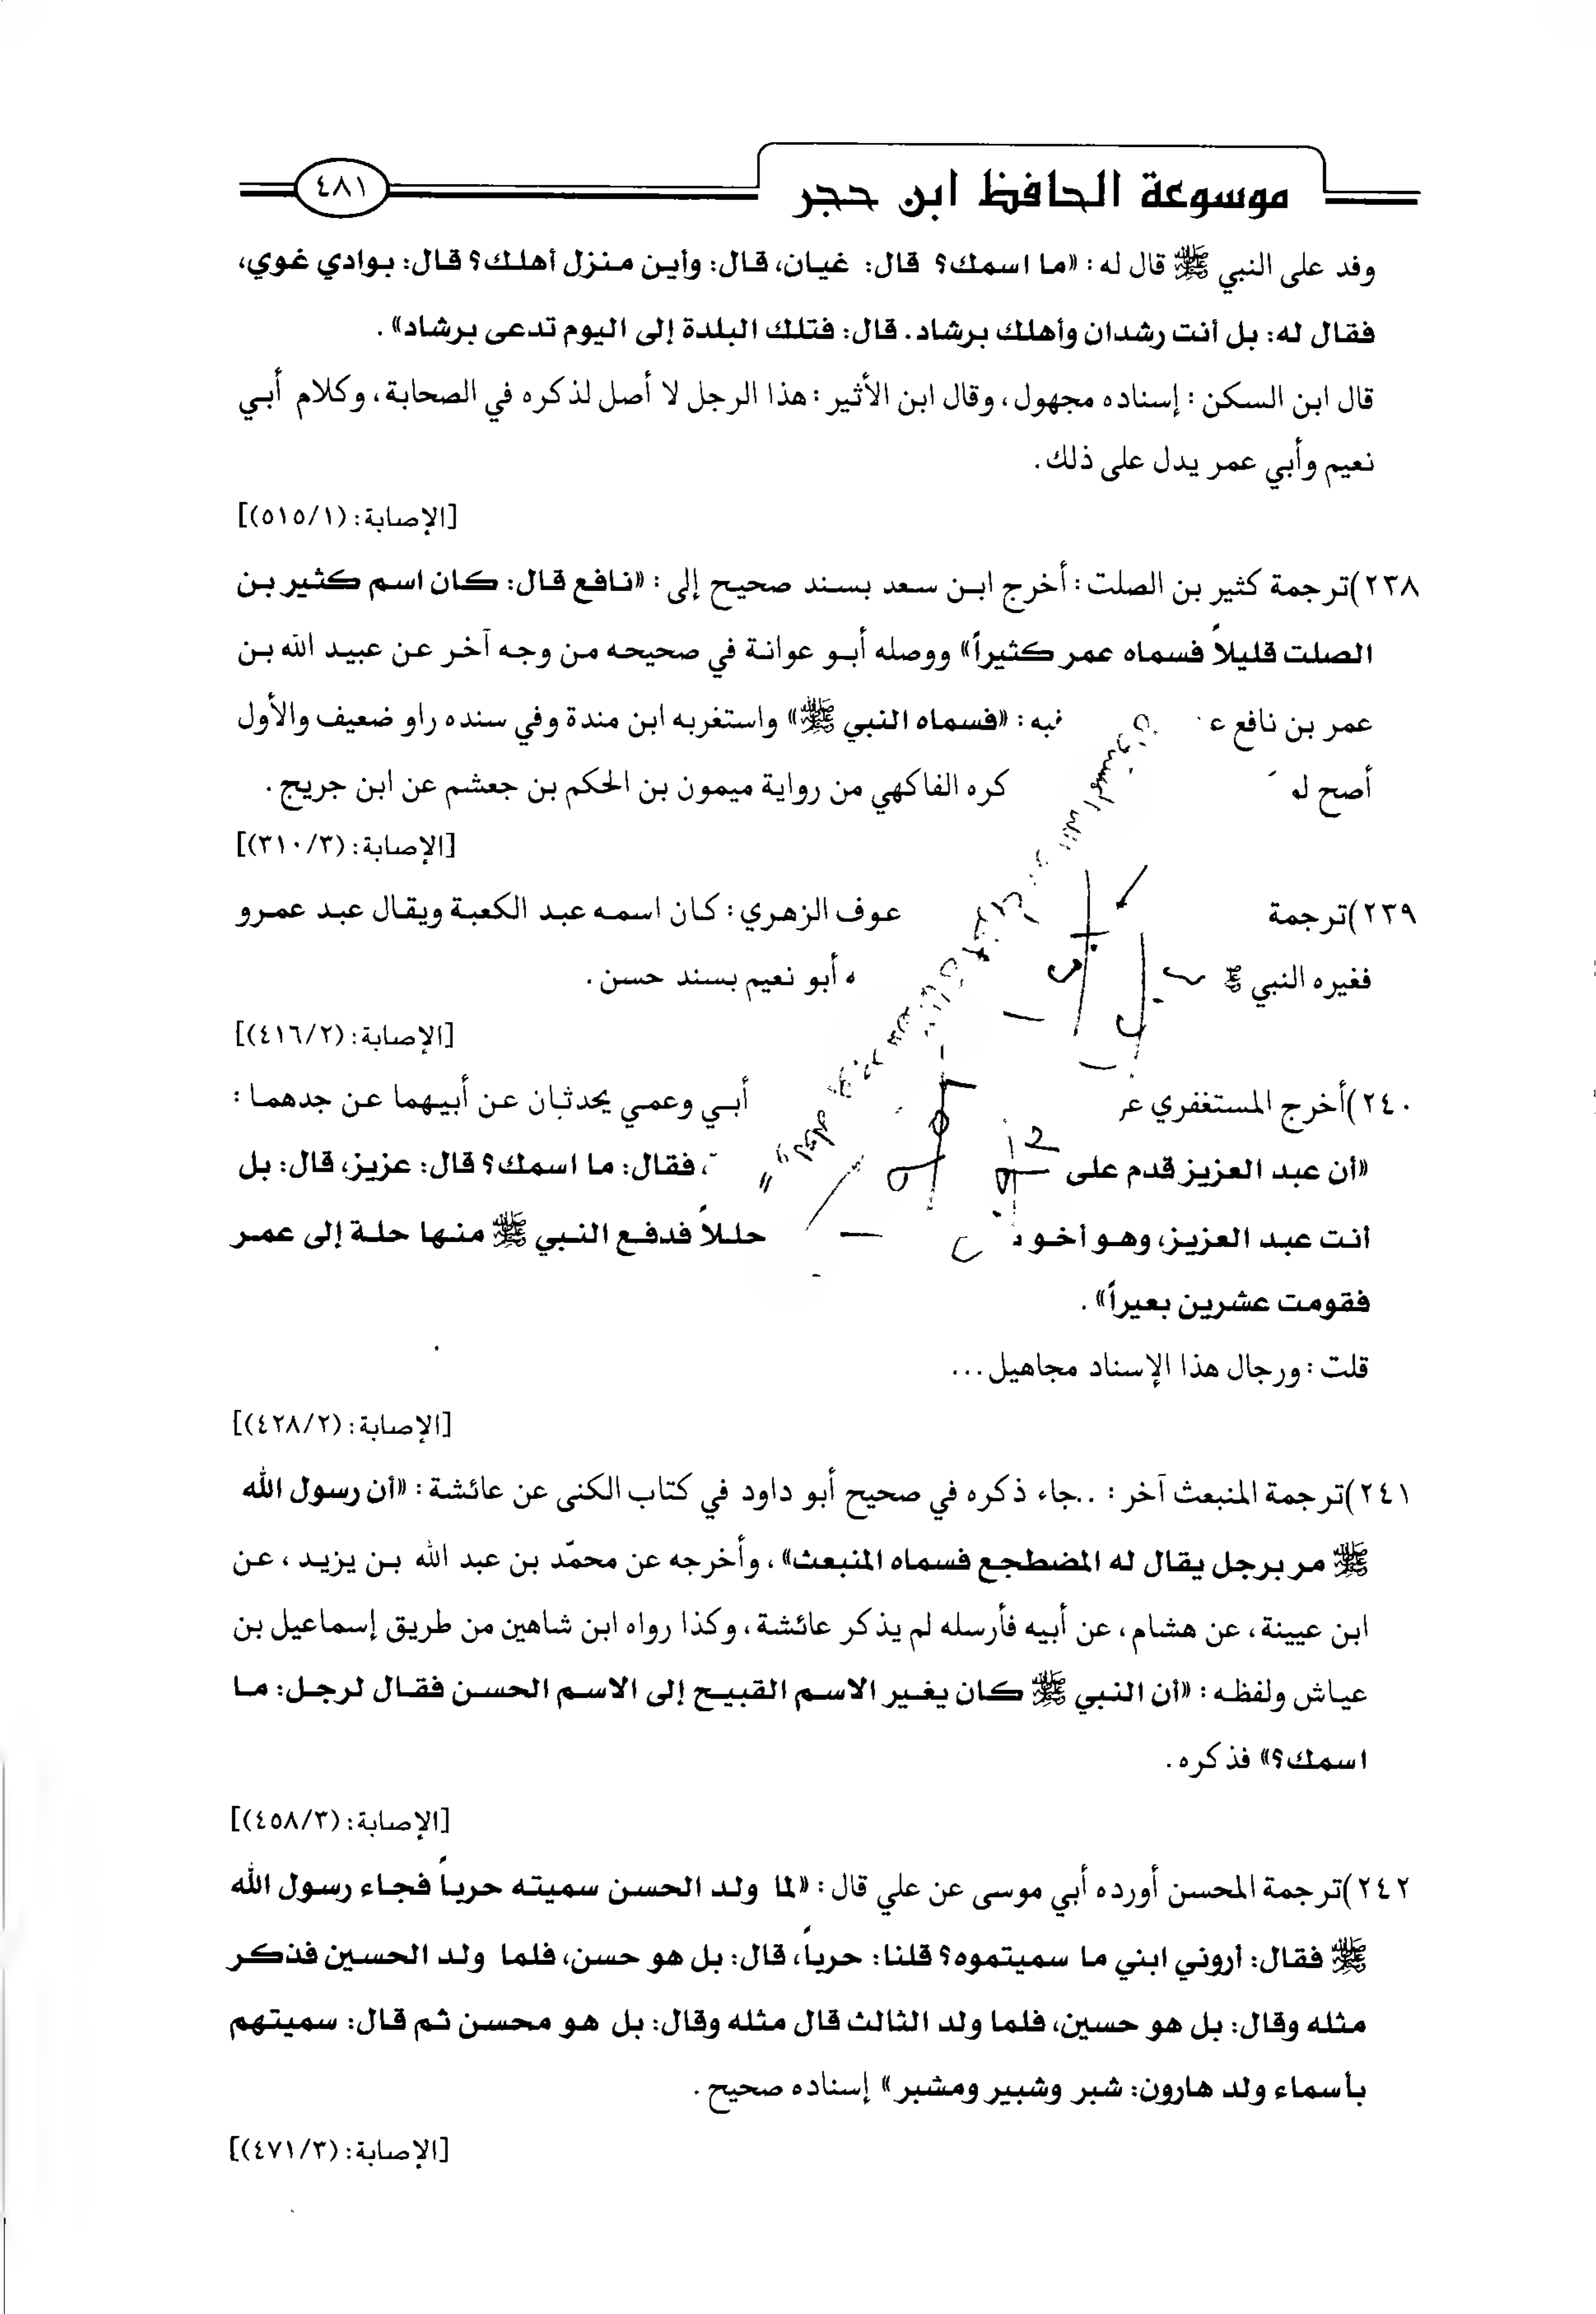 موسوعة الحافظ ابن حجر
٤٨١
وفد على النبي ﷺ قال له: «ما اسمك؟ قال: غيان، قال: وأين منزل أهلك؟ قال: بوادي غوي،
فقال له: بل أنت رشدان وأهلك برشاد. قال: فتلك البلدة إلى اليوم تدعى برشاد».
قال ابن السكن: إسناده مجهول، وقال ابن الأثير: هذا الرجل لا أصل لذكره في الصحابة، وكلام أبي
نعيم وأبي عمر يدل على ذلك.
[الإصابة: (٥١٥/١)]
٢٣٨)ترجمة كثير بن الصلت: أخرج ابن سعد بسند صحيح إلى: «نافع قال: كان اسم كثير بن
الصلت قليلاً فسماه عمر كثيراً» ووصله أبو عوانة في صحيحه من وجه آخر عن عبيد الله بن
عمر بن نافع فيه: «فسماه النبي ﷺ» واستغربه ابن مندة وفي سنده راو ضعيف والأول
أصح كره الفاكهي من رواية ميمون بن الحكم بن جعشم عن ابن جريج.
[الإصابة: (٣١٠/٣)]
٢٣٩)ترجمة عوف الزهري: كان اسمه عبد الكعبة ويقال عبد عمرو
فغيره النبي ﷺ أبو نعيم بسند حسن.
[الإصابة: (٤١٦/٢)]
٢٤٠)أخرج المستغفري أبي وعمي يحدثان عن أبيهما عن جدهما:
«أن عبد العزيز قدم على ، فقال: ما اسمك؟ قال: عزيز، قال: بل
أنت عبد العزيز، وهو أخو حللاً فدفع النبي ﷺ منها حلة إلى عمر
فقومت عشرين بعيراً».
قلت: ورجال هذا الإسناد مجاهيل...
[الإصابة: (٤٢٨/٢)]
٢٤١)ترجمة المنبعث آخر: ..جاء ذكره في صحيح أبو داود في كتاب الكنى عن عائشة: «أن رسول الله
ﷺ مر برجل يقال له المضطجع فسماه المنبعث»، وأخرجه عن محمّد بن عبد الله بن يزيد، عن
ابن عيينة، عن هشام، عن أبيه فأرسله لم يذكر عائشة، وكذا رواه ابن شاهين من طريق إسماعيل بن
عياش ولفظه: «أن النبي ﷺ كان يغير الاسم القبيح إلى الاسم الحسن فقال لرجل: ما
اسمك؟» فذكره.
[الإصابة: (٤٥٨/٣)]
٢٤٢)ترجمة المحسن أورده أبي موسى عن علي قال: «لما ولد الحسن سميته حرباً فجاء رسول الله
ﷺ فقال: أروني ابني ما سميتموه؟ قلنا: حرباً، قال: بل هو حسن، فلما ولد الحسين فذكر
مثله وقال: بل هو حسين، فلما ولد الثالث قال مثله وقال: بل هو محسن ثم قال: سميتهم
بأسماء ولد هارون: شبر وشبير ومشبر» إسناده صحيح.
[الإصابة: (٤٧١/٣)]